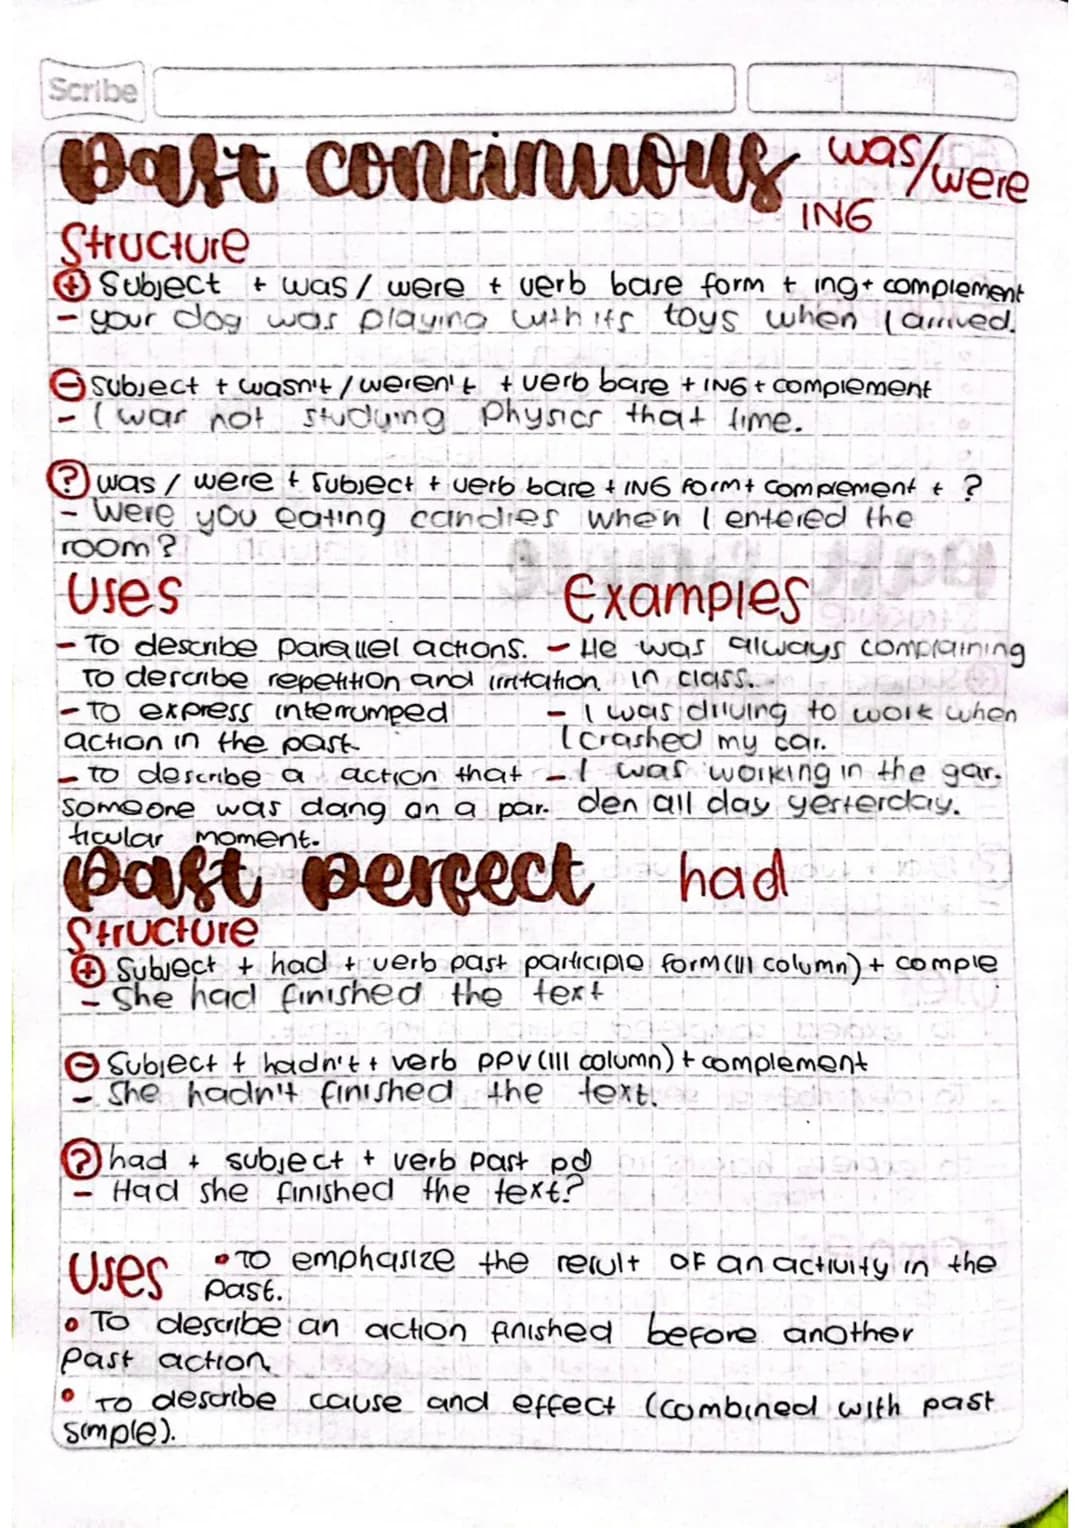 Scribe
Past continuous was/were
ING
Structure
(+) Subject + was / were + verb base form + ing + complement
- your dog was playing with its toys when I arrived.
(-) Subject + wasn't / weren't + verb base + ING + complement
- I was not studying Physics that time.
(?) was / were + subject + verb bare + ING form + complement + ?
- Were you eating candies when I entered the
room?
Uses
- To describe parallel actions.
To describe repetition and irritation.
- To express interrumped
action in the past.
- to describe a action that
someone was doing on a par-
ticular moment.
Examples
- He was always complaining
in class.
- I was driving to work when
I crashed my car.
- I was working in the gar-
den all day yesterday.
Past perfect had
Structure
(+) Subject + had + verb past participle form (III column) + comple
- She had finished the text
(-) Subject + hadn't + verb ppv (III column) + complement
- She hadn't finished the text.
(?) had + subject + verb past pd
- Had she finished the text?
Uses
• To emphasize the result of an activity in the
past.
• To describe an action finished before another
Past action.
• To describe cause and effect (combined with past
simple).